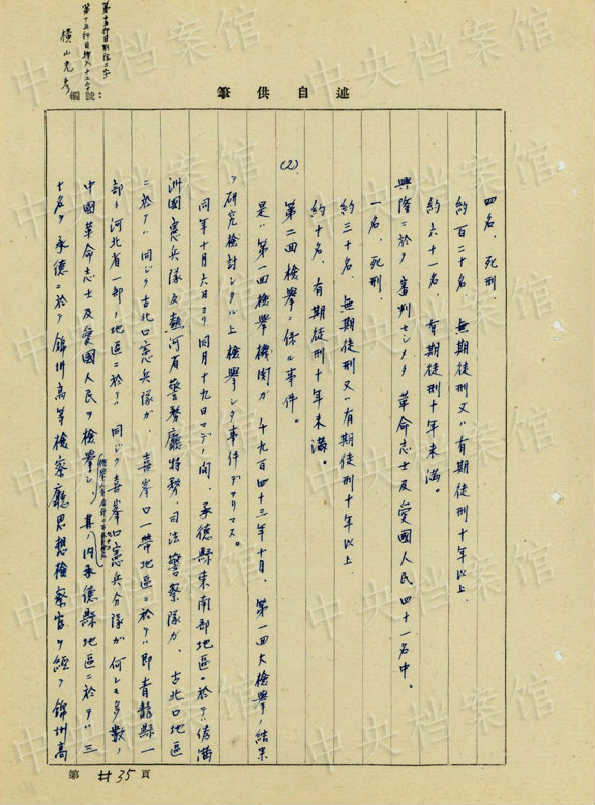 第十五行目削除二字
第十五行目挿入十二字
横山光彦
編號:
筆供自述
四名、死刑、
約百二十名 無期徒刑又ハ有期徒刑十年以上、
約六十一名、有期徒刑十年未満。
興隆ニ於テ審判セシタル革命志士及愛國人民四十一名中。
一名、死刑、
約三十名、無期徒刑又ハ有期徒刑十年以上
約十名、有期徒刑十年未満。
(2) 第二回檢擧ニ係ル事件。
是ハ第一回檢擧機関ガ千九百四十三年十月、第一回大檢擧ノ結果
ヲ研究檢討シタル上檢擧シタ事件デアリマス。
同年十月六日ヨリ同月十九日マデノ間、承德縣東南部地區ニ於テハ偽滿
洲國憲兵隊及熱河省警務廳特務、司法警察隊ガ、古北口地區
ニ於テハ同ジク古北口憲兵隊ガ、喜峯口一帶地區ニ於テハ即青龍縣一
部ト河北省一部ノ地區ニ於テハ同ジク喜峯口憲兵分隊ガ何レモ多數ノ
中國革命志士及愛國人民ヲ檢擧シ 其ノ内承德縣地區ニ於テハ三
十名ヲ承德ニ於テ錦州高等檢察廳思想檢察官ヲ經テ錦州高
第 #35 頁
中央档案馆